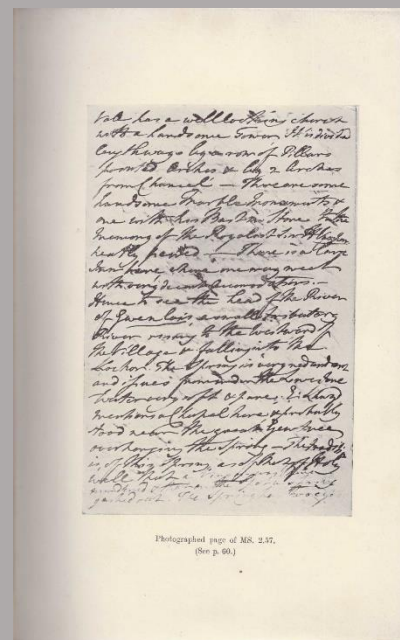 Vale has a well looking church
with a handsome Tower. It is divided
lengthways by a row of Pillars
pointed Arches & by 2 Arches
from Chancel — There are some
handsome Marble Monuments &
one with his Bust in Stone to the
Memory of the Royalist Sir
neatly — There is a large
Inn here, where one may meet
with decent accommodations. —
Hence to see the head of the River
of a small tributary
River rising to the Westward of
the Village & falling into the
The Spring is very
and issues from under the Limestone
water very soft & pure.
mentions a Chapel here & probably
stood near the great Yew tree
overhanging the Spring — The
is, of this Spring, as of that of Holy
well that a
The Spring
Photographed page of MS. 2.57,
(See p. 60.)